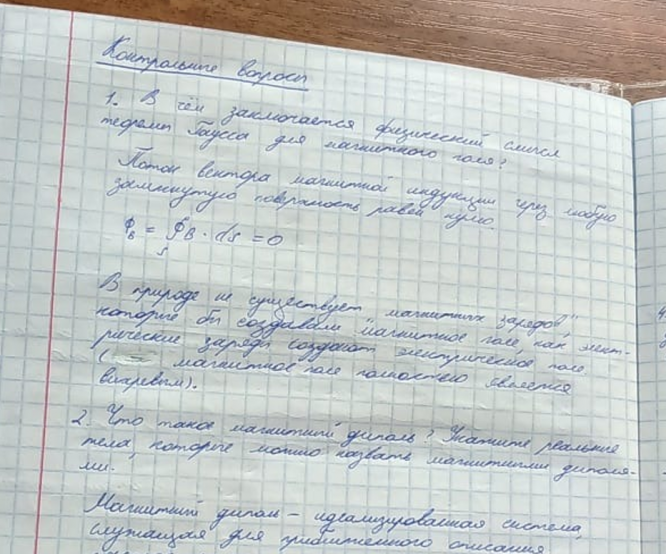 Контрольные вопросы
1. В чём заключается физический смысл
теоремы Гаусса для магнитного поля?
Поток вектора магнитной индукции через любую
замкнутую поверхность равен нулю.
Φ_B = ∮_S B · dS = 0
В природе не существует "магнитных зарядов",
которые бы создавали магнитное поле, как элект-
рические заряды создают электрическое поле.
( магнитное поле полностью является
вихревым).
2. Что такое магнитный диполь? Укажите реальные
тела, которые можно назвать магнитными диполя-
ми.
Магнитный диполь – идеализированная система,
служащая для приближённого описания